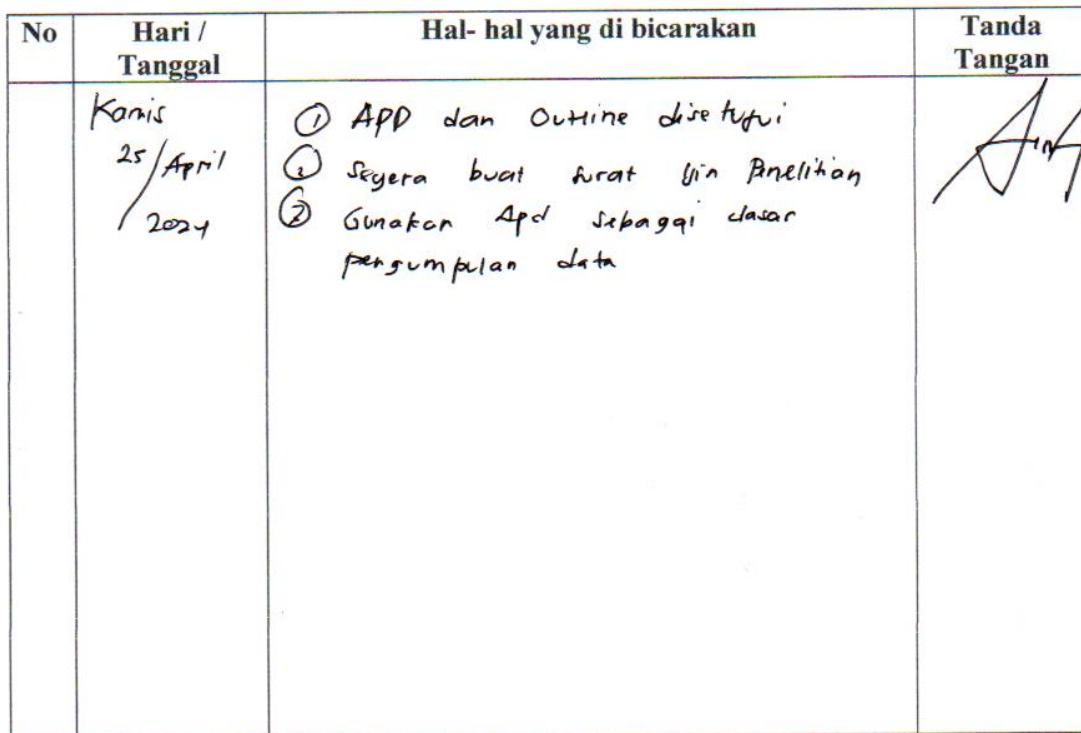 No Hari / Tanggal Hal- hal yang di bicarakan Tanda Tangan
Kamis
25/April
/2024
① APD dan Outline disetujui
② Segera buat surat Ijin Penelitian
③ Gunakan Apd sebagai dasar
pengumpulan data